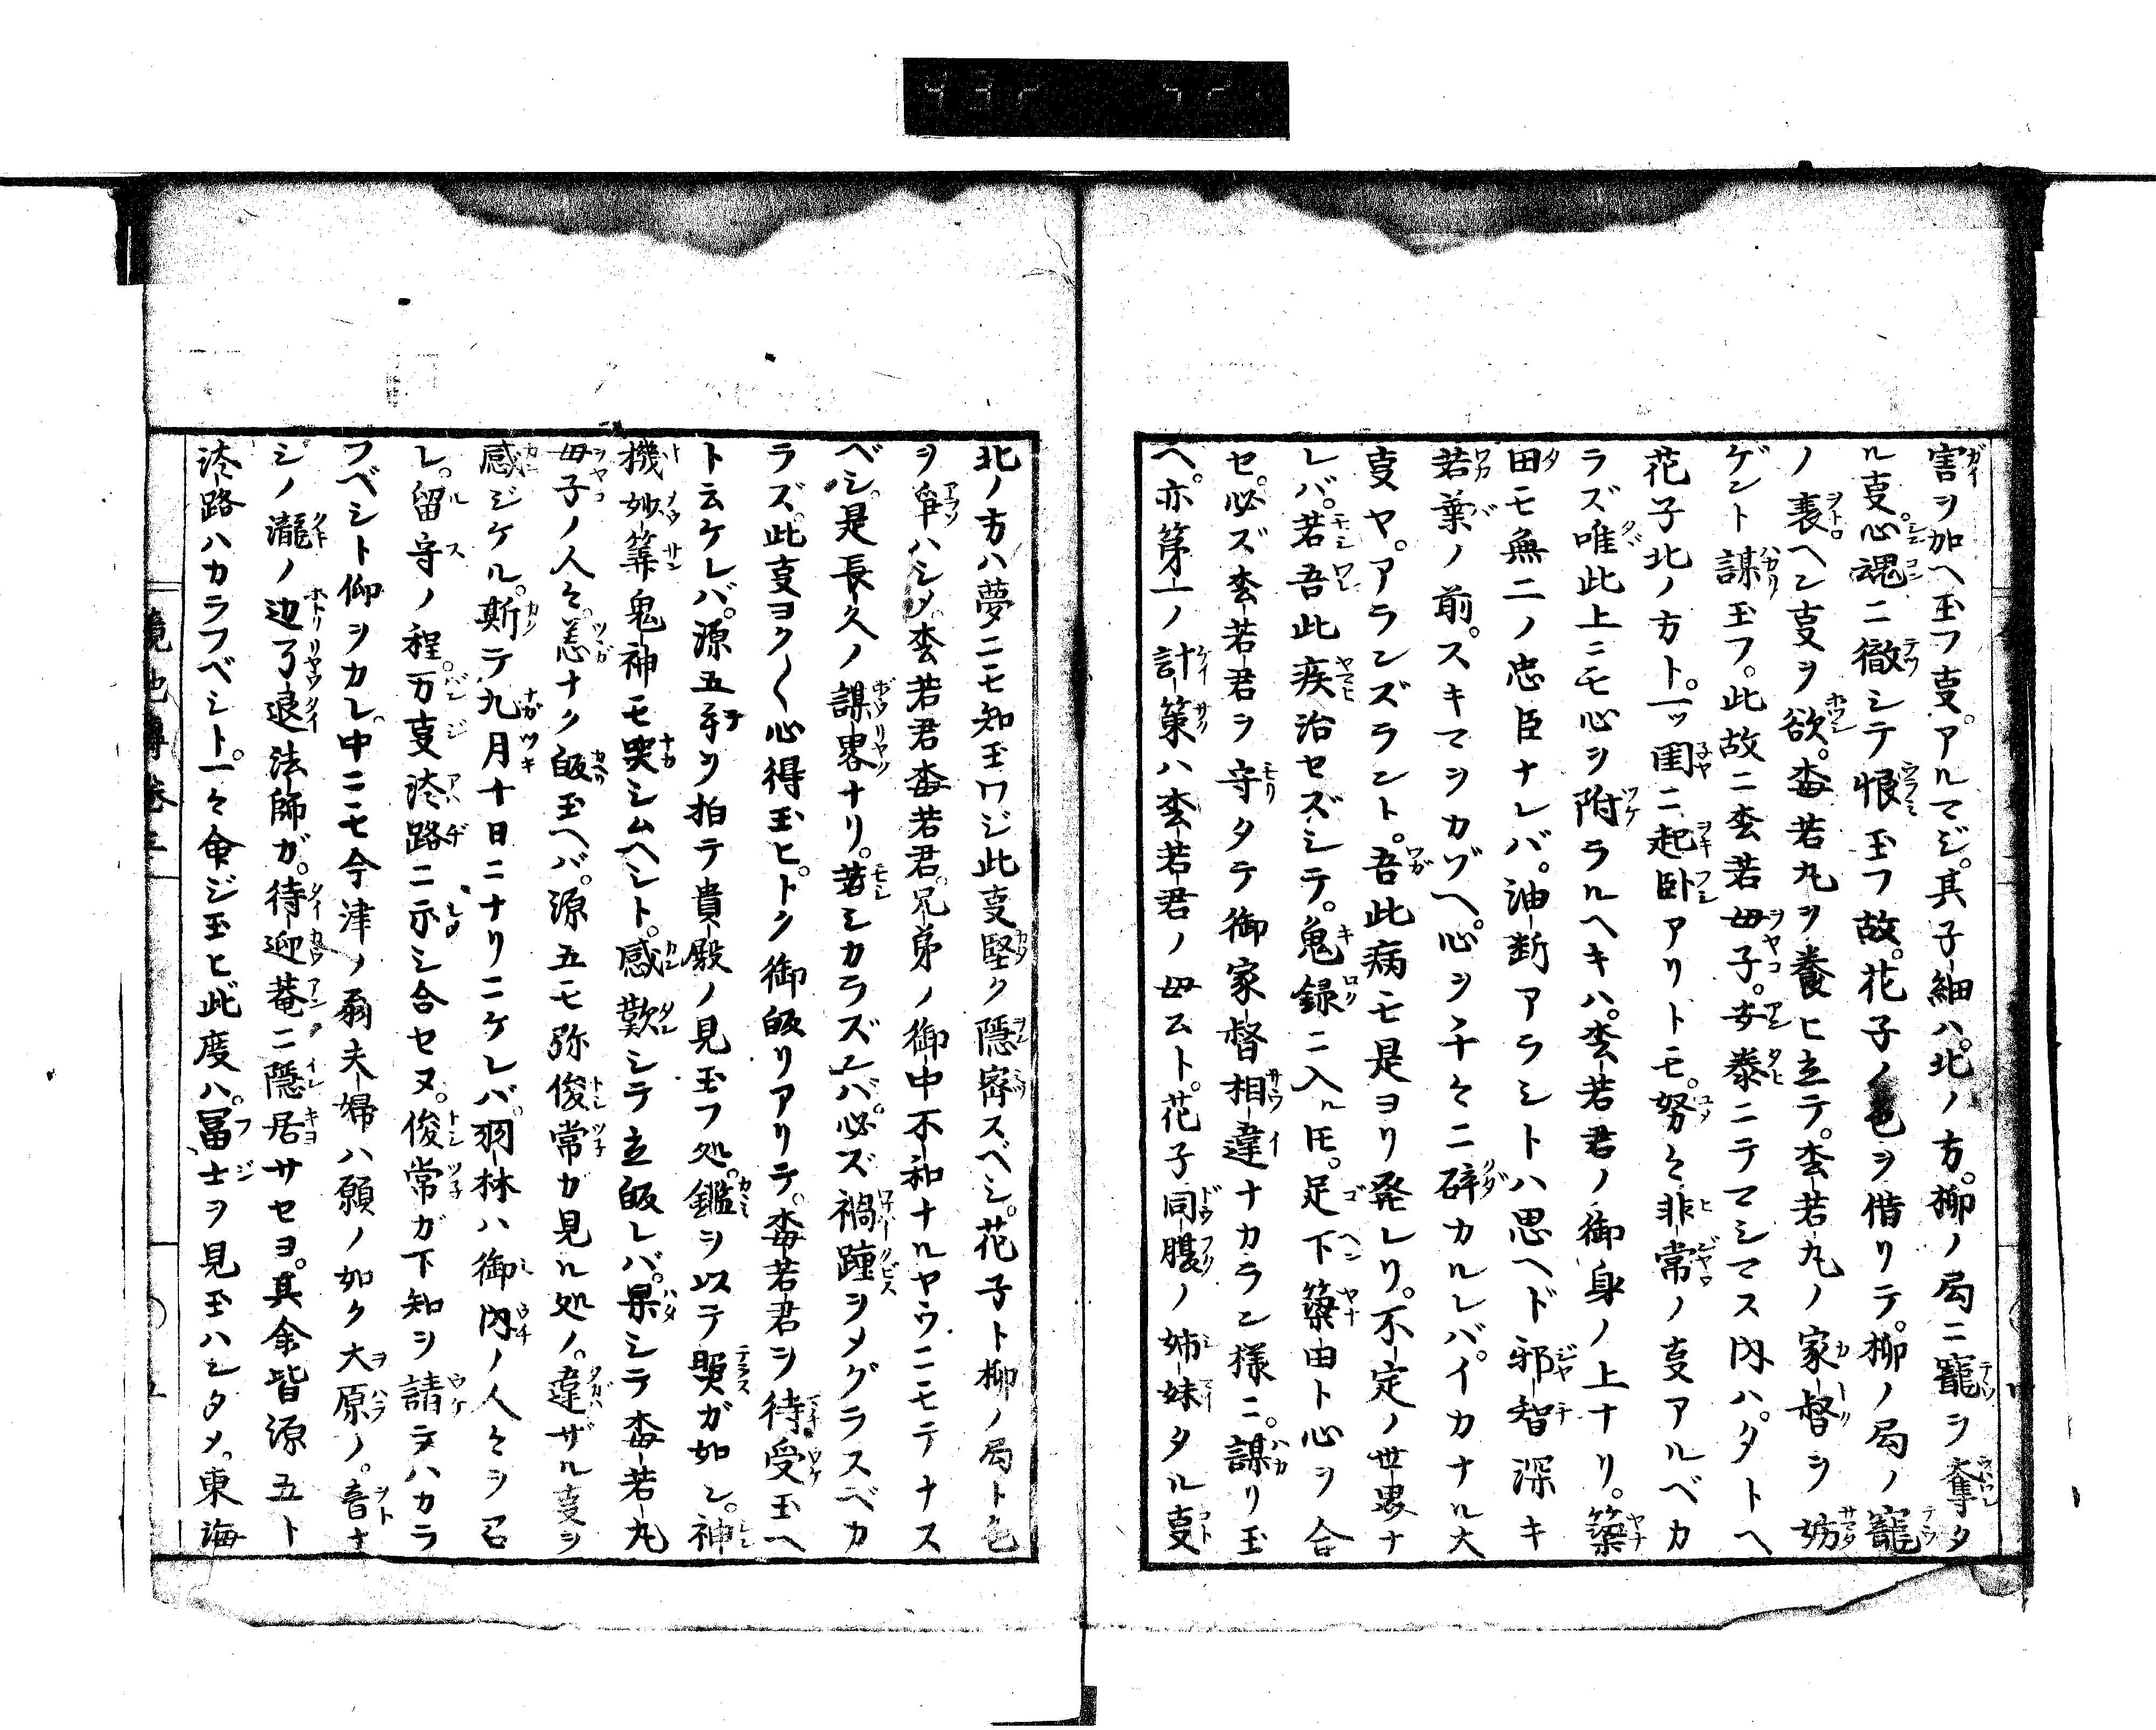 害ヲ加ヘ玉フ𫝆。アルマジ。其子細ハ。北ノ方。柳ノ局ニ寵ヲ奪タ
ル𫝆。心魂ニ徹シテ恨玉フ故。花子ノ色ヲ借リテ。柳ノ局ノ寵
ノ衰ヘン𫝆ヲ欲。梅若丸ヲ養ヒ立テ。松若丸ノ家督ヲ妨
ゲント謀玉フ。此故ニ松若母子。安泰ニテマシマス内ハ。タトヘ
花子北ノ方ト。一ッ閨ニ起臥アリトモ。努々非常ノ𫝆アルベカ
ラズ唯此上ニモ心ヲ附ラルヘキハ。松若君ノ御身ノ上ナリ。簗
田モ無二ノ忠臣ナレバ。油断アラシトハ思ヘド邪智深キ
若葉ノ前。スキマヲカゾヘ。心ヲ千々ニ砕カルレバ。イカナル大
𫝆ヤ。アランズラント。吾此病モ是ヨリ発レリ。不定ノ世界ナ
レバ。若吾此疾治セズシテ。鬼録ニ入ル𪜈。足下簗由ト心ヲ合
セ。必ズ松若君ヲ守タテ御家督相違ナカラン様ニ。謀リ玉
ヘ。亦第一ノ計策ハ松若君ノ母ムト。花子同腹ノ姉妹タル𫝆
北ノ方ハ夢ニモ知玉ワジ此𫝆堅ク隠密スベシ。花子ト柳ノ局ト色
ヲ爭ハシメ。松若君梅若君。兄弟ノ御中不和ナルヤウニモテナス
ベシ。是長久ノ謀畧ナリ。若シカラズンバ。必ズ禍踵ヲメグラスベカ
ラズ。此𫝆ヨク〱心得玉ヒ。トク御皈リアリテ。梅若君ヲ待受玉ヘ
ト云ケレバ。源五手ヲ拍テ貴殿ノ見玉フ処。鑑ヲ以テ照ガ如シ。神
機妙筭鬼神モ哭シムヘシト。感歎シテ立皈レバ。果シテ梅若丸
母子ノ人々。恙ナク皈玉ヘバ。源五モ弥俊常ガ見ル処ノ。違ザル𫝆ヲ
感ジケル。斯テ九月十日ニナリニケレバ。羽林ハ御内ノ人々ヲ召
レ。留守ノ程。万𫝆淡路ニ示シ合セヌ。俊常ガ下知ヲ請テハカラ
フベシト仰ヲカレ。中ニモ今津ノ翁夫婦ハ願ノ如ク大原ノ。音ナ
シノ瀧ノ辺了退法師ガ。待迎菴ニ隠居サセヨ。其余皆源五ト
淡路ハカラフベシト。一々命ジ玉ヒ此度ハ。冨士ヲ見玉ハンタメ。東海